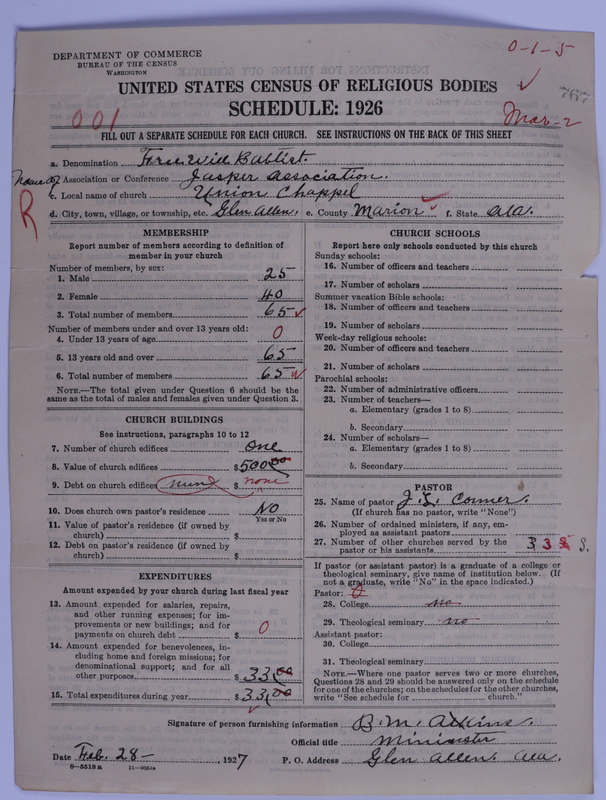 DEPARTMENT OF COMMERCE
BUREAU OF THE CENSUS
WASHINGTON
0-1-5
UNITED STATES CENSUS OF RELIGIOUS BODIES
767
SCHEDULE: 1926
001
Mar-2
FILL OUT A SEPARATE SCHEDULE FOR EACH CHURCH. SEE INSTRUCTIONS ON THE BACK OF THIS SHEET
a. Denomination Free Will Baptist.
Name of
b. Association or Conference Jasper Association.
c. Local name of church Union Chappel
R
d. City, town, village, or township, etc. Glen Allen, e. County Marion f. State Ala.
MEMBERSHIP
Report number of members according to definition of
member in your church
Number of members, by sex:
1. Male 25
2. Female 40
3. Total number of members 65
Number of members under and over 13 years old:
4. Under 13 years of age 0
5. 13 years old and over 65
6. Total number of members 65
NOTE.—The total given under Question 6 should be
same as the total of males and females given under Question 3.
CHURCH BUILDINGS
See instructions, paragraphs 10 to 12
7. Number of church edifices one
8. Value of church edifices $500.00
9. Debt on church edifices none $ none
10. Does church own pastor's residence No
Yes or No
11. Value of pastor's residence (if owned by
church) $
12. Debt on pastor's residence (if owned by
church) $
EXPENDITURES
Amount expended by your church during last fiscal year
13. Amount expended for salaries, repairs,
and other running expenses; for im-
provements or new buildings; and for
payments on church debt $ 0
14. Amount expended for benevolences, in-
cluding home and foreign missions; for
denominational support; and for all
other purposes $ 33.00
15. Total expenditures during year $ 33.00
CHURCH SCHOOLS
Report here only schools conducted by this church
Sunday schools:
16. Number of officers and teachers
17. Number of scholars
Summer vacation Bible schools:
18. Number of officers and teachers
19. Number of scholars
Week-day religious schools:
20. Number of officers and teachers
21. Number of scholars
Parochial schools:
22. Number of administrative officers
23. Number of teachers—
a. Elementary (grades 1 to 8)
b. Secondary
24. Number of scholars—
a. Elementary (grades 1 to 8)
b. Secondary
PASTOR
25. Name of pastor J. L. Conner.
(If church has no pastor, write "None")
26. Number of ordained ministers, if any, em-
ployed as assistant pastors
27. Number of other churches served by the
pastor or his assistants 3 3 3.
If pastor (or assistant pastor) is a graduate of a college or
theological seminary, give name of institution below. (If
not a graduate, write "No" in the space indicated.)
Pastor: 0
28. College no
29. Theological seminary no
Assistant pastor:
30. College
31. Theological seminary
NOTE.—Where one pastor serves two or more churches,
Questions 28 and 29 should be answered only on the schedule
for one of the churches; on the schedules for the other churches,
write "See schedule for church."
Signature of person furnishing information B. M. Atkins.
Official title Minister
Date Feb. 28- , 1927 P. O. Address Glen Allen. Ala.
8-5518 a